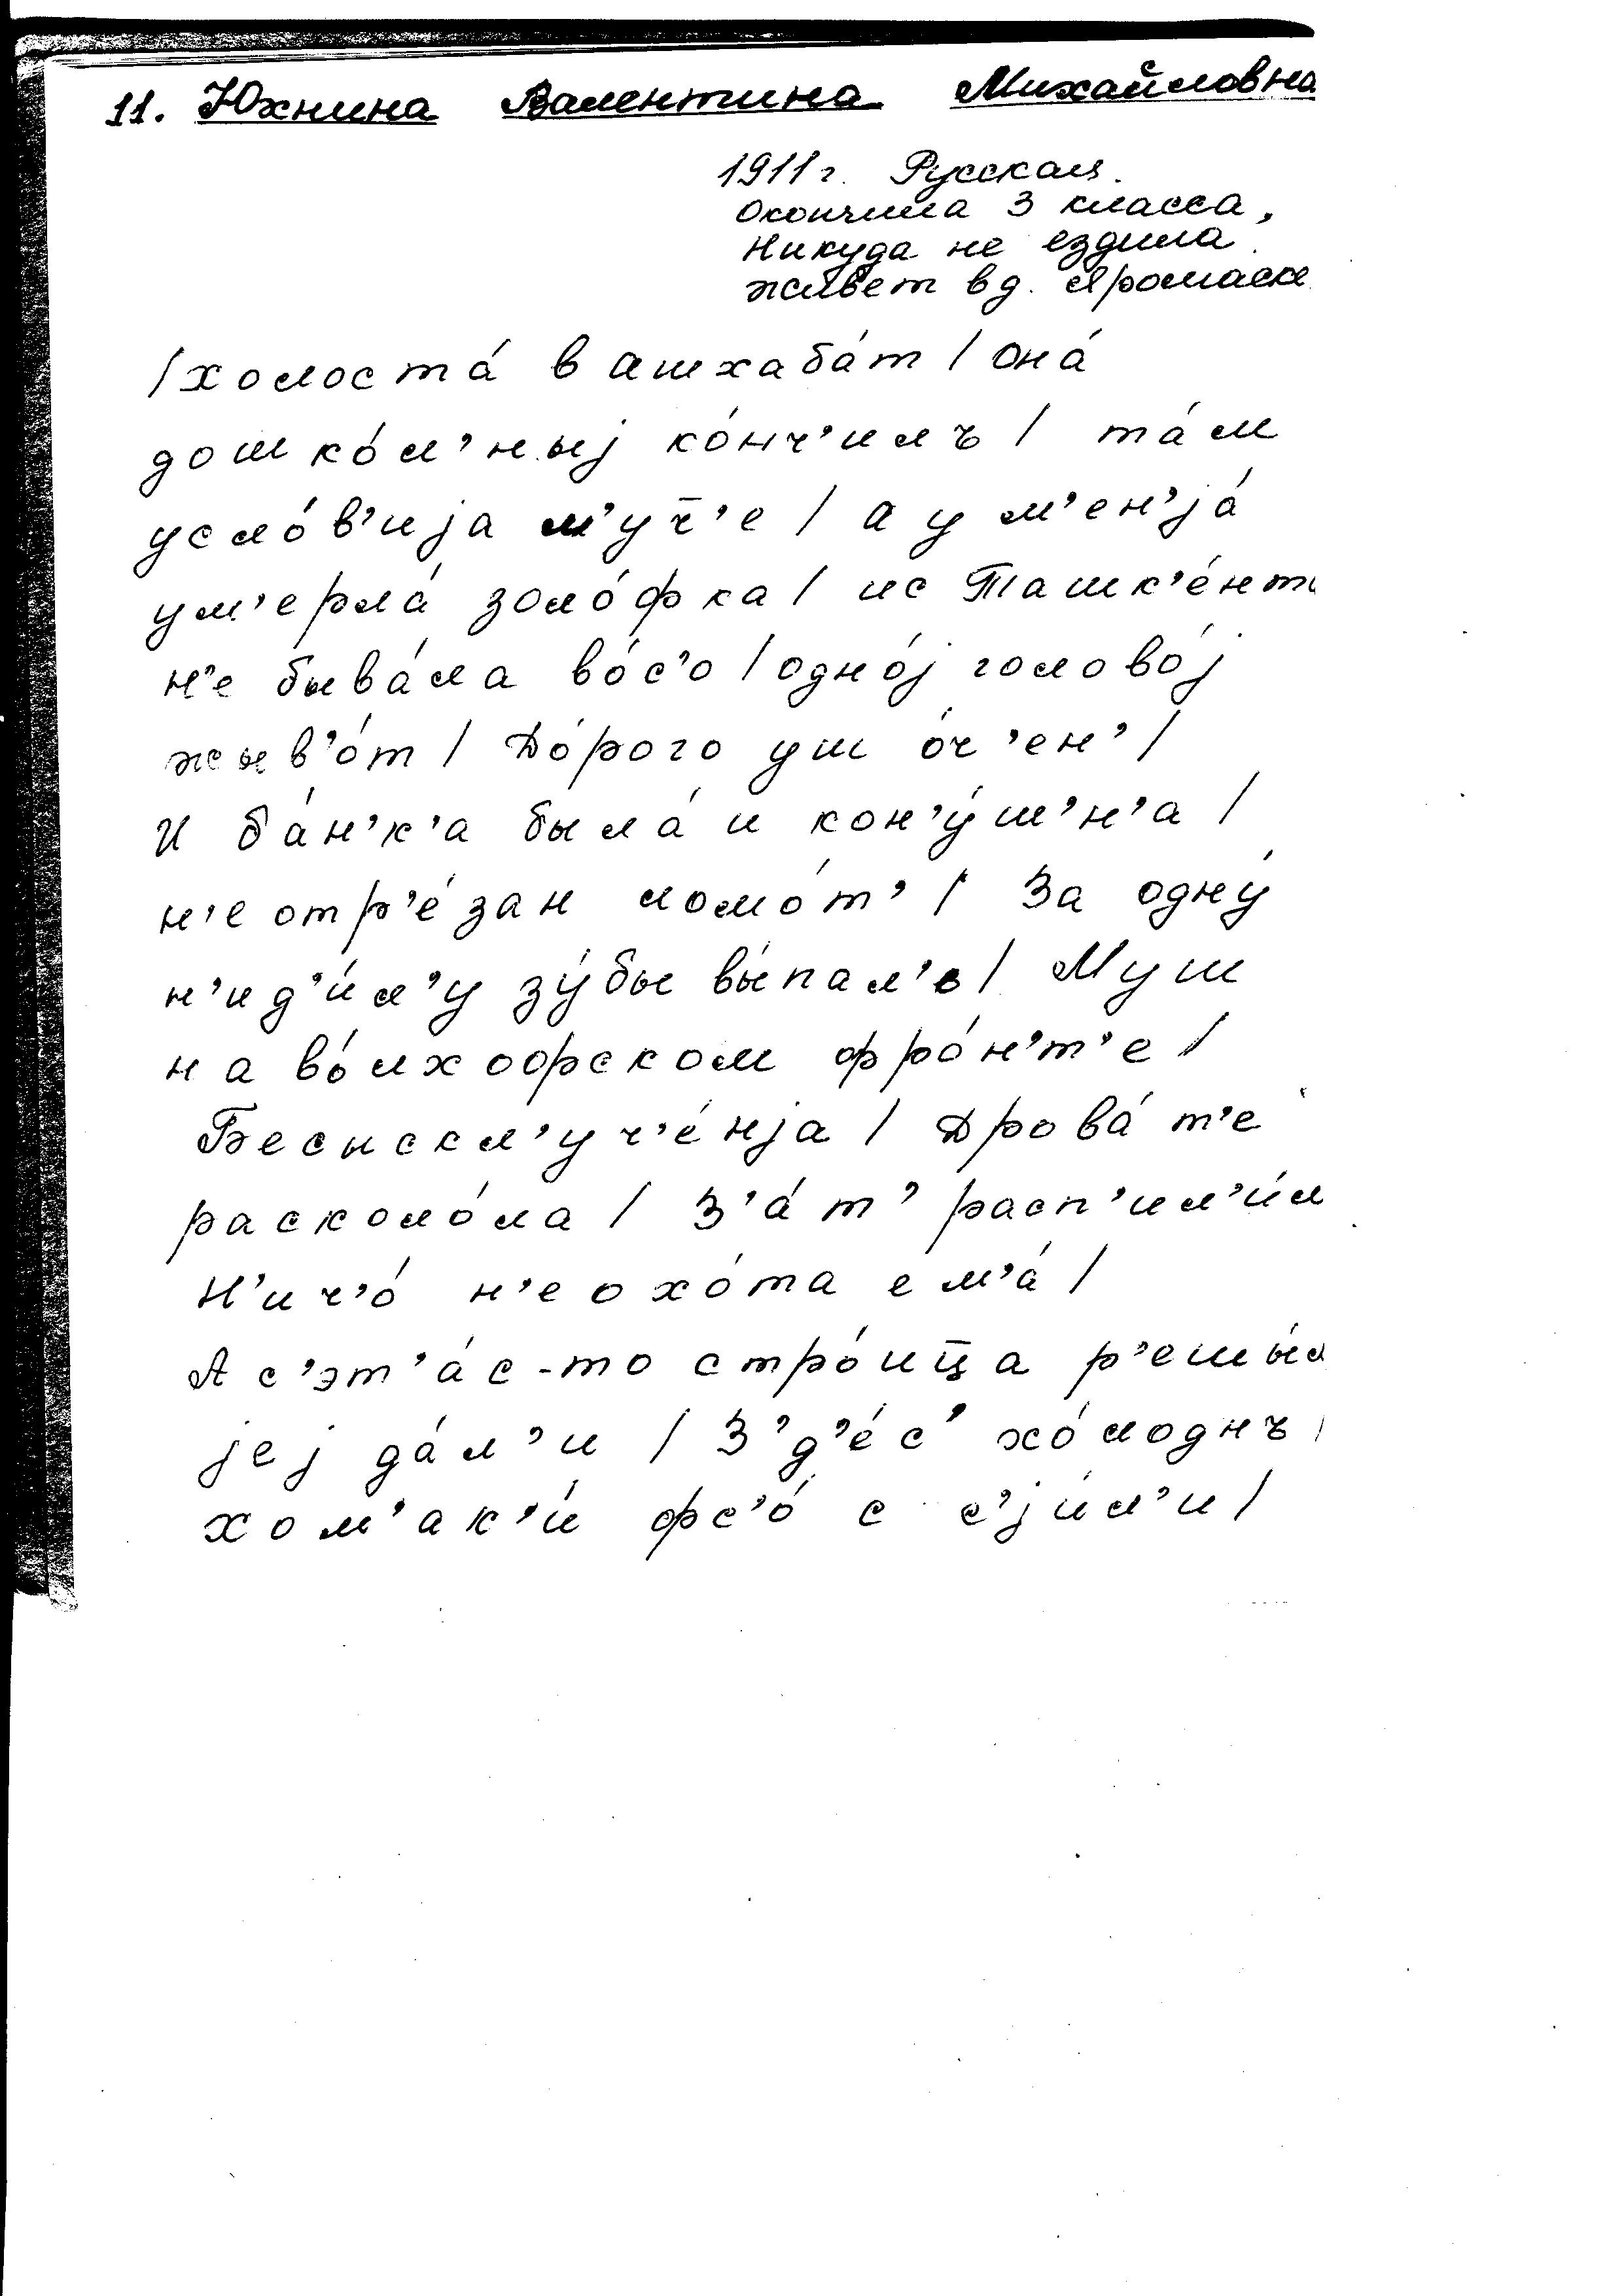 11. Юхнина Валентина Михайловна
1911 г. Русская.
Окончила 3 класса,
Никуда не ездила.
живет в д. Яромаске
/ холоста́ в ашхаба́т / она́
дошко́л’ныј ко́нч’илъ / та́м
усло́в’ија л’у́ч̅’е / а у м’ен’jа́
ум’ерла́ золо́фка / ис Ташк’е́нт
н’е быва́ла во́с’о / одно́ј голово́ј
жыв’о́т / До́рого уш о́ч’ен’ /
И ба́н’к’а была́ и кон’у́ш’н’а /
н’е отр’е́зан ломо́т’ / За одну́
н’ид’и́л’у зу́бы вы́пал’ь / Муш
на во́лхофском фро́н’т’е /
Бесыскл’уч’е́нjа / Дрова́ т’е
расколо́ла / З’а́т’ расп’ил’и́л
Н’ич’о́ н’е охо́та ема́ /
А с’эт’а́с-то стро́ић̅ца р’ешы́л
jеj да́л’и / З’д’е́с’ хо́лоднъ /
хом’ак’и́ фс’о́ с с’jи́л’и /